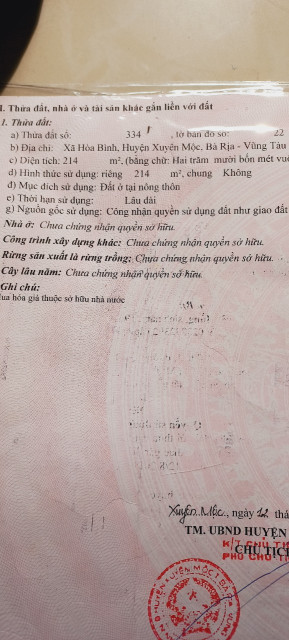 I. Thửa đất, nhà ở và tài sản khác gắn liền với đất
1. Thửa đất:
a) Thửa đất số: 334 , tờ bản đồ số: 22
b) Địa chỉ: Xã Hòa Bình, Huyện Xuyên Mộc, Bà Rịa - Vũng Tàu
c) Diện tích: 214 m², (bằng chữ: Hai trăm mười bốn mét vu
d) Hình thức sử dụng: riêng 214 m², chung Không
đ) Mục đích sử dụng: Đất ở tại nông thôn
e) Thời hạn sử dụng: Lâu dài
g) Nguồn gốc sử dụng: Công nhận quyền sử dụng đất như giao đất
Nhà ở: Chưa chứng nhận quyền sở hữu.
Công trình xây dựng khác: Chưa chứng nhận quyền sở hữu.
Rừng sản xuất là rừng trồng: Chưa chứng nhận quyền sở hữu.
Cây lâu năm: Chưa chứng nhận quyền sở hữu.
Ghi chú:
ua hóa giá thuộc sở hữu nhà nước
Xuyên Mộc, ngày thá
TM. UBND HUYỆN
K/T CHỦ TỊ
CHỦ TỊCH
PHÓ CHỦ TỊ
HUYỆN XUYÊN MỘC T. BÀ RỊA